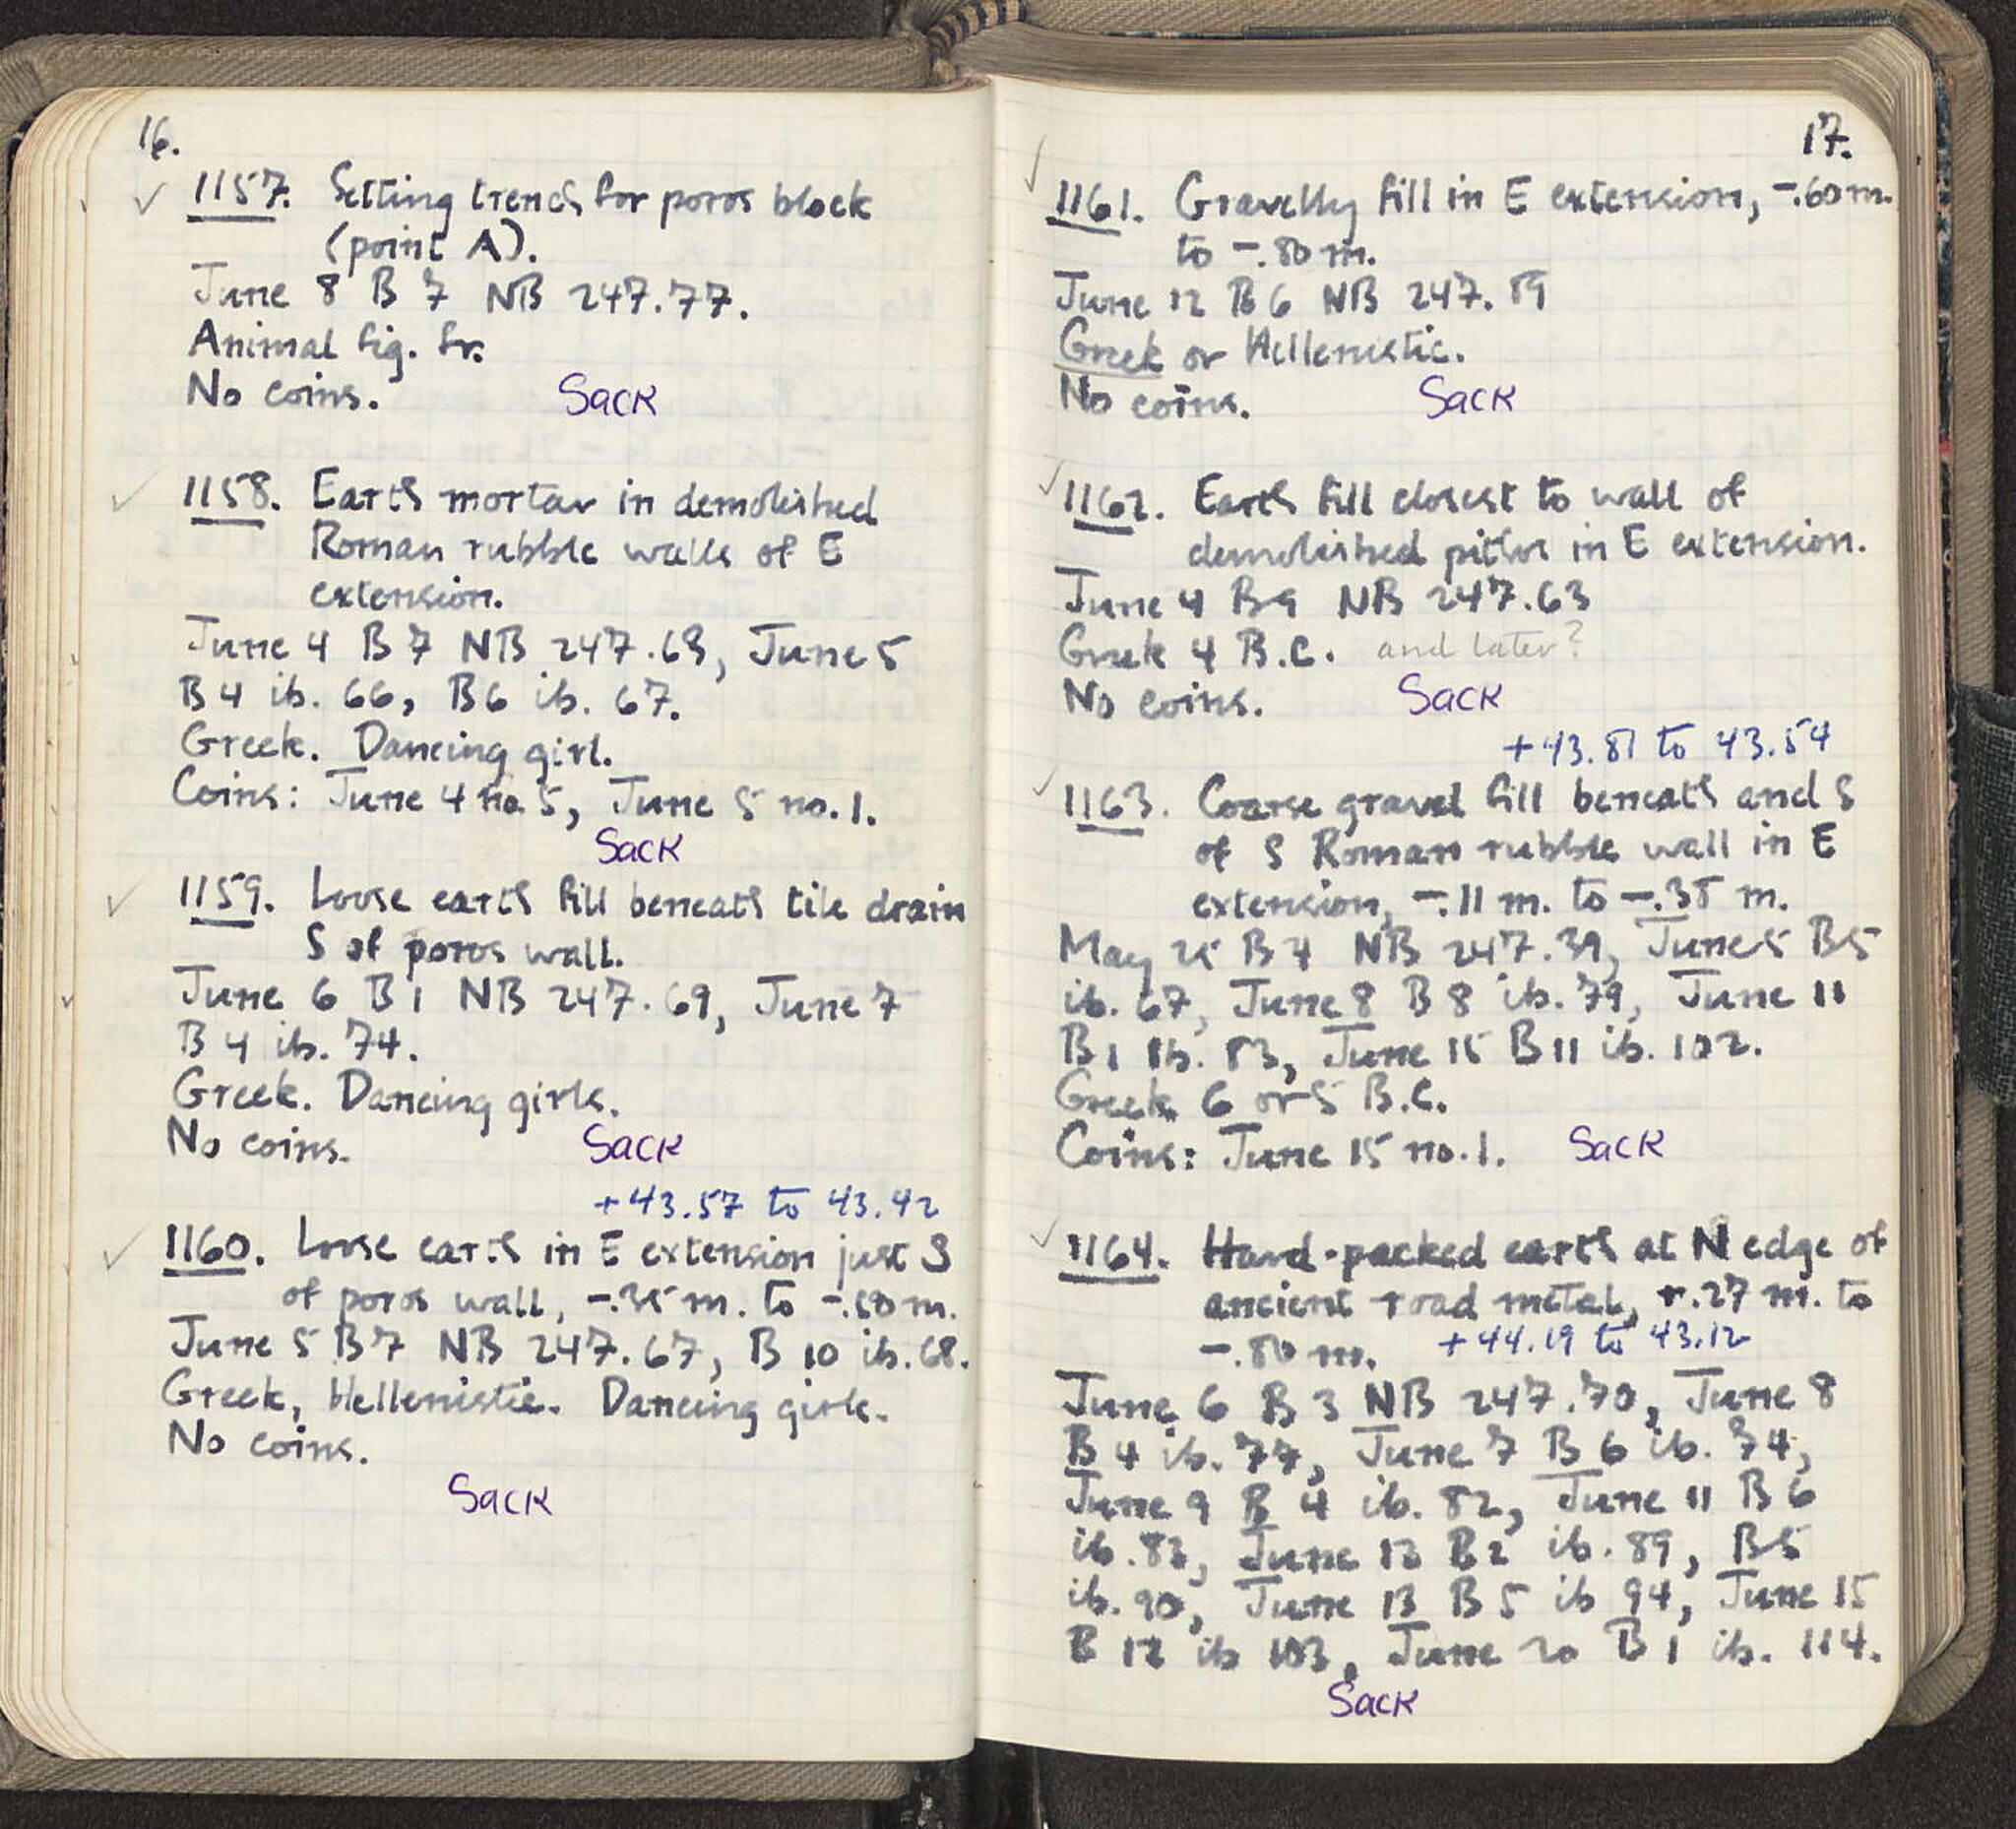 16.
1157. Setting trench for poros block
(point A).
June 8 B 7 NB 247.77.
Animal fig. fr.
No coins. Sack
1158. Earth mortar in demolished
Roman rubble walls of E
extension.
June 4 B 7 NB 247.63, June 5
B 4 ib. 66, B 6 ib. 67.
Greek. Dancing girl.
Coins: June 4 no 5, June 5 no. 1.
Sack
1159. Loose earth fill beneath tile drain
S of poros wall.
June 6 B 1 NB 247.69, June 7
B 4 ib. 74.
Greek. Dancing girls.
No coins. Sack
+43.57 to 43.42
1160. Loose earth in E extension just S
of poros wall, -.35 m. to -.50 m.
June 5 B 7 NB 247.67, B 10 ib. 68.
Greek, Hellenistic. Dancing girls.
No coins.
Sack
17.
1161. Gravelly fill in E extension, -.60 m.
to -.80 m.
June 12 B 6 NB 247.89
Greek or Hellenistic.
No coins. Sack
1162. Earth fill closest to wall of
demolished pithos in E extension.
June 4 B 9 NB 247.63
Greek 4 B.C. and later?
No coins. Sack
+43.81 to 43.54
1163. Coarse gravel fill beneath and S
of S Roman rubble wall in E
extension, -.11 m. to -.38 m.
May 25 B 7 NB 247.39, June 5 B 5
ib. 67, June 8 B 8 ib. 79, June 11
B 1 ib. 83, June 15 B 11 ib. 102.
Greek 6 or 5 B.C.
Coins: June 15 no. 1. Sack
1164. Hard-packed earth at N edge of
ancient road metal, +.27 m. to
-.80 m. +44.19 to 43.12
June 6 B 3 NB 247.70, June 8
B 4 ib. 77, June 7 B 6 ib. 74,
June 9 B 4 ib. 82, June 11 B 6
ib. 83, June 12 B 2 ib. 89, B 5
ib. 90, June 13 B 5 ib 94, June 15
B 12 ib 103, June 20 B 1 ib. 114.
Sack